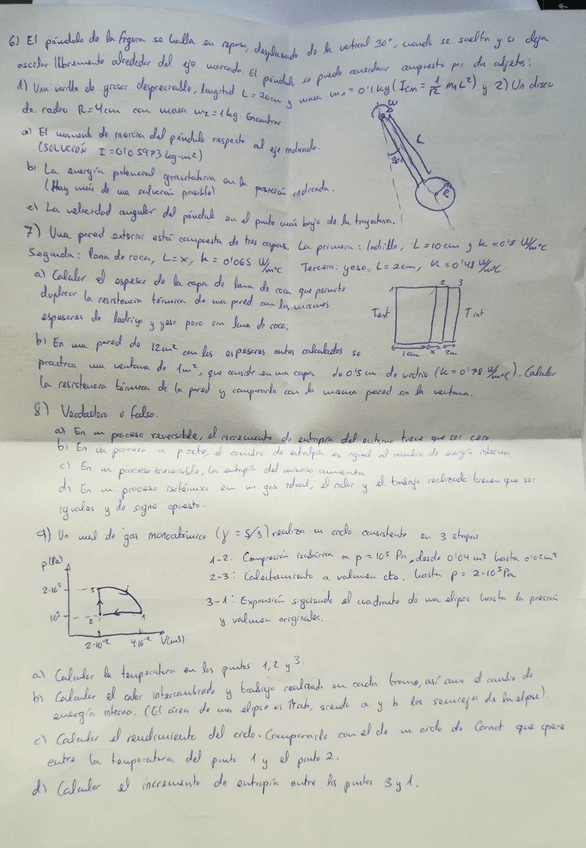 6) El péndulo de la figura se halla en reposo, desplazado de la vertical 30°, cuando se suelta y se deja
oscilar libremente alrededor del eje marcado. El péndulo se puede considerar compuesto por dos objetos:
1) Una varilla de grosor despreciable, longitud L = 20cm y masa m1 = 0'1kg (Icm = 1/12 m1L²) y 2) Un disco
de radio R = 4cm con masa m2 = 1kg. Encontrar
a) El momento de inercia del péndulo respecto al eje indicado.
(SOLUCIÓN I = 0'05973 kg·m²)
b) La energía potencial gravitatoria en la posición indicada.
(Hay más de una solución posible)
c) La velocidad angular del péndulo en el punto más bajo de la trayectoria.
ω
L
30°
R
7) Una pared exterior está compuesta de tres capas. La primera: ladrillo, L = 10cm y K = W/m°C
Segunda: lana de roca, L = x, K = 0'065 W/m°C Tercera: yeso, L = 2cm, K = 0'48 W/m°C
a) Calcular el espesor de la capa de lana de roca que permite
duplicar la resistencia térmica de una pared con los mismos
espesores de ladrillo y yeso pero sin lana de roca.
1 2 3
Text Tint
x 2cm
b) En una pared de 12m² con los espesores antes calculados se
practica una ventana de 1m², que consiste en una capa de 0'5cm de vidrio (K = 0'78 W/m°C). Calcular
la resistencia térmica de la pared y compararla con la misma pared sin la ventana.
8) Verdadero o falso.
a) En un proceso reversible, el incremento de entropía del entorno tiene que ser cero
b) En un proceso a p = cte, el cambio de entalpía es igual al cambio de energía interna
c) En un proceso irreversible, la entropía del universo aumenta
d) En un proceso isotérmico en un gas ideal, el calor y el trabajo realizado tienen que ser
iguales y de signo opuesto.
9) Un mol de gas monoatómico (γ = 5/3) realiza un ciclo consistente en 3 etapas
1-2. Compresión isobárica a p = 10⁵ Pa, desde 0'04m³ hasta 0'02m³
2-3: Calentamiento a volumen cte. hasta p = 2·10⁵Pa
3-1: Expansión siguiendo el cuadrante de una elipse hasta la presión
y volumen originales.
p(Pa)
2·10⁵
10⁵
3
2
1
2·10⁻² 4·10⁻² V(m3)
a) Calcular la temperatura en los puntos 1, 2 y 3.
b) Calcular el calor intercambiado y trabajo realizado en cada tramo, así como el cambio de
energía interna. (El área de una elipse es πab, siendo a y b los semiejes de la elipse)
c) Calcular el rendimiento del ciclo. Compararlo con el de un ciclo de Carnot que opere
entre la temperatura del punto 1 y el punto 2.
d) Calcular el incremento de entropía entre los puntos 3 y 1.